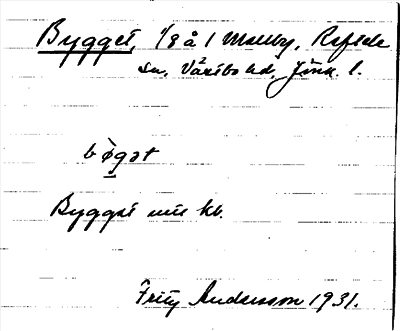 Bygget, 1/8 å 1 Målby, Reftele
sn, Västbo hd, Jönk. l.
bø̀gət
Bygget utt. kb.
Fritz Andersson 1931.